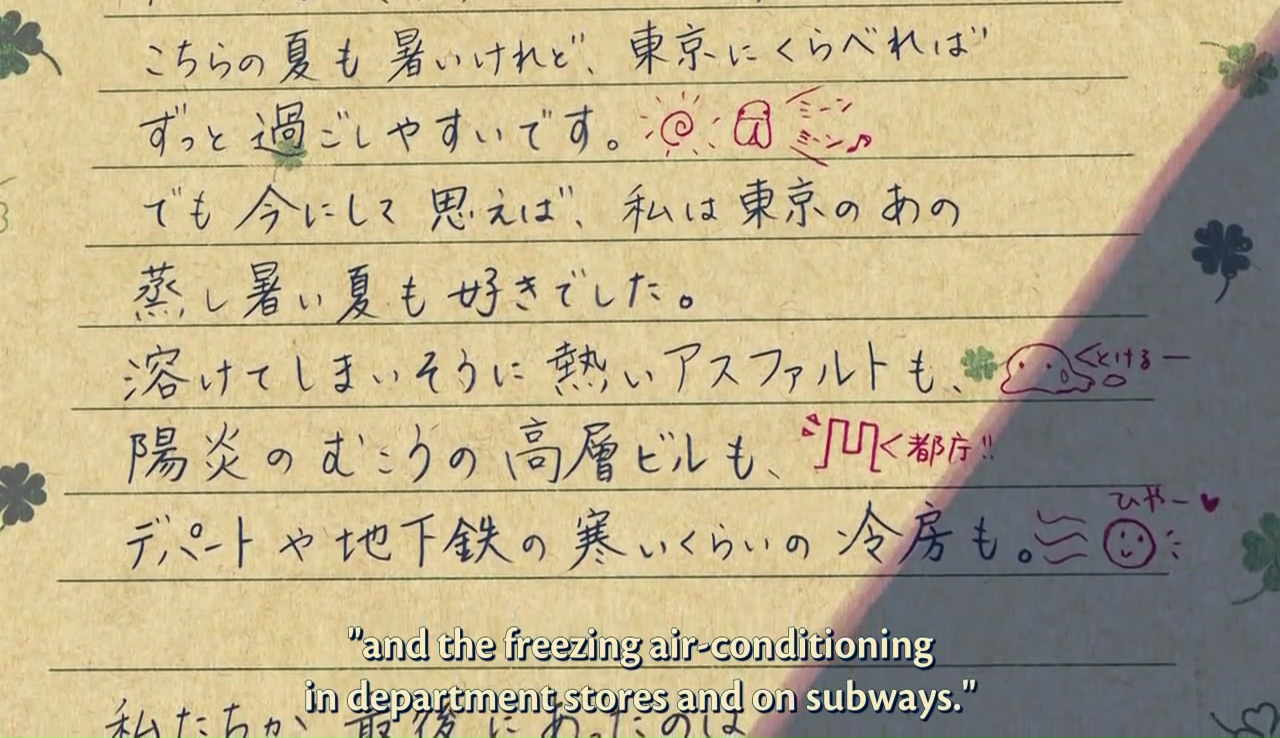 こちらの夏も暑いけれど、東京にくらべれば
ずっと過ごしやすいです。 ミーン ミーン♪
でも今にして思えば、私は東京のあの
蒸し暑い夏も好きでした。
溶けてしまいそうに熱いアスファルトも、 とけるー
陽炎のむこうの高層ビルも、 都庁!!
ひやー♥
デパートや地下鉄の寒いくらいの冷房も。
"and the freezing air-conditioning
in department stores and on subways."
私たちが最後に会ったのは